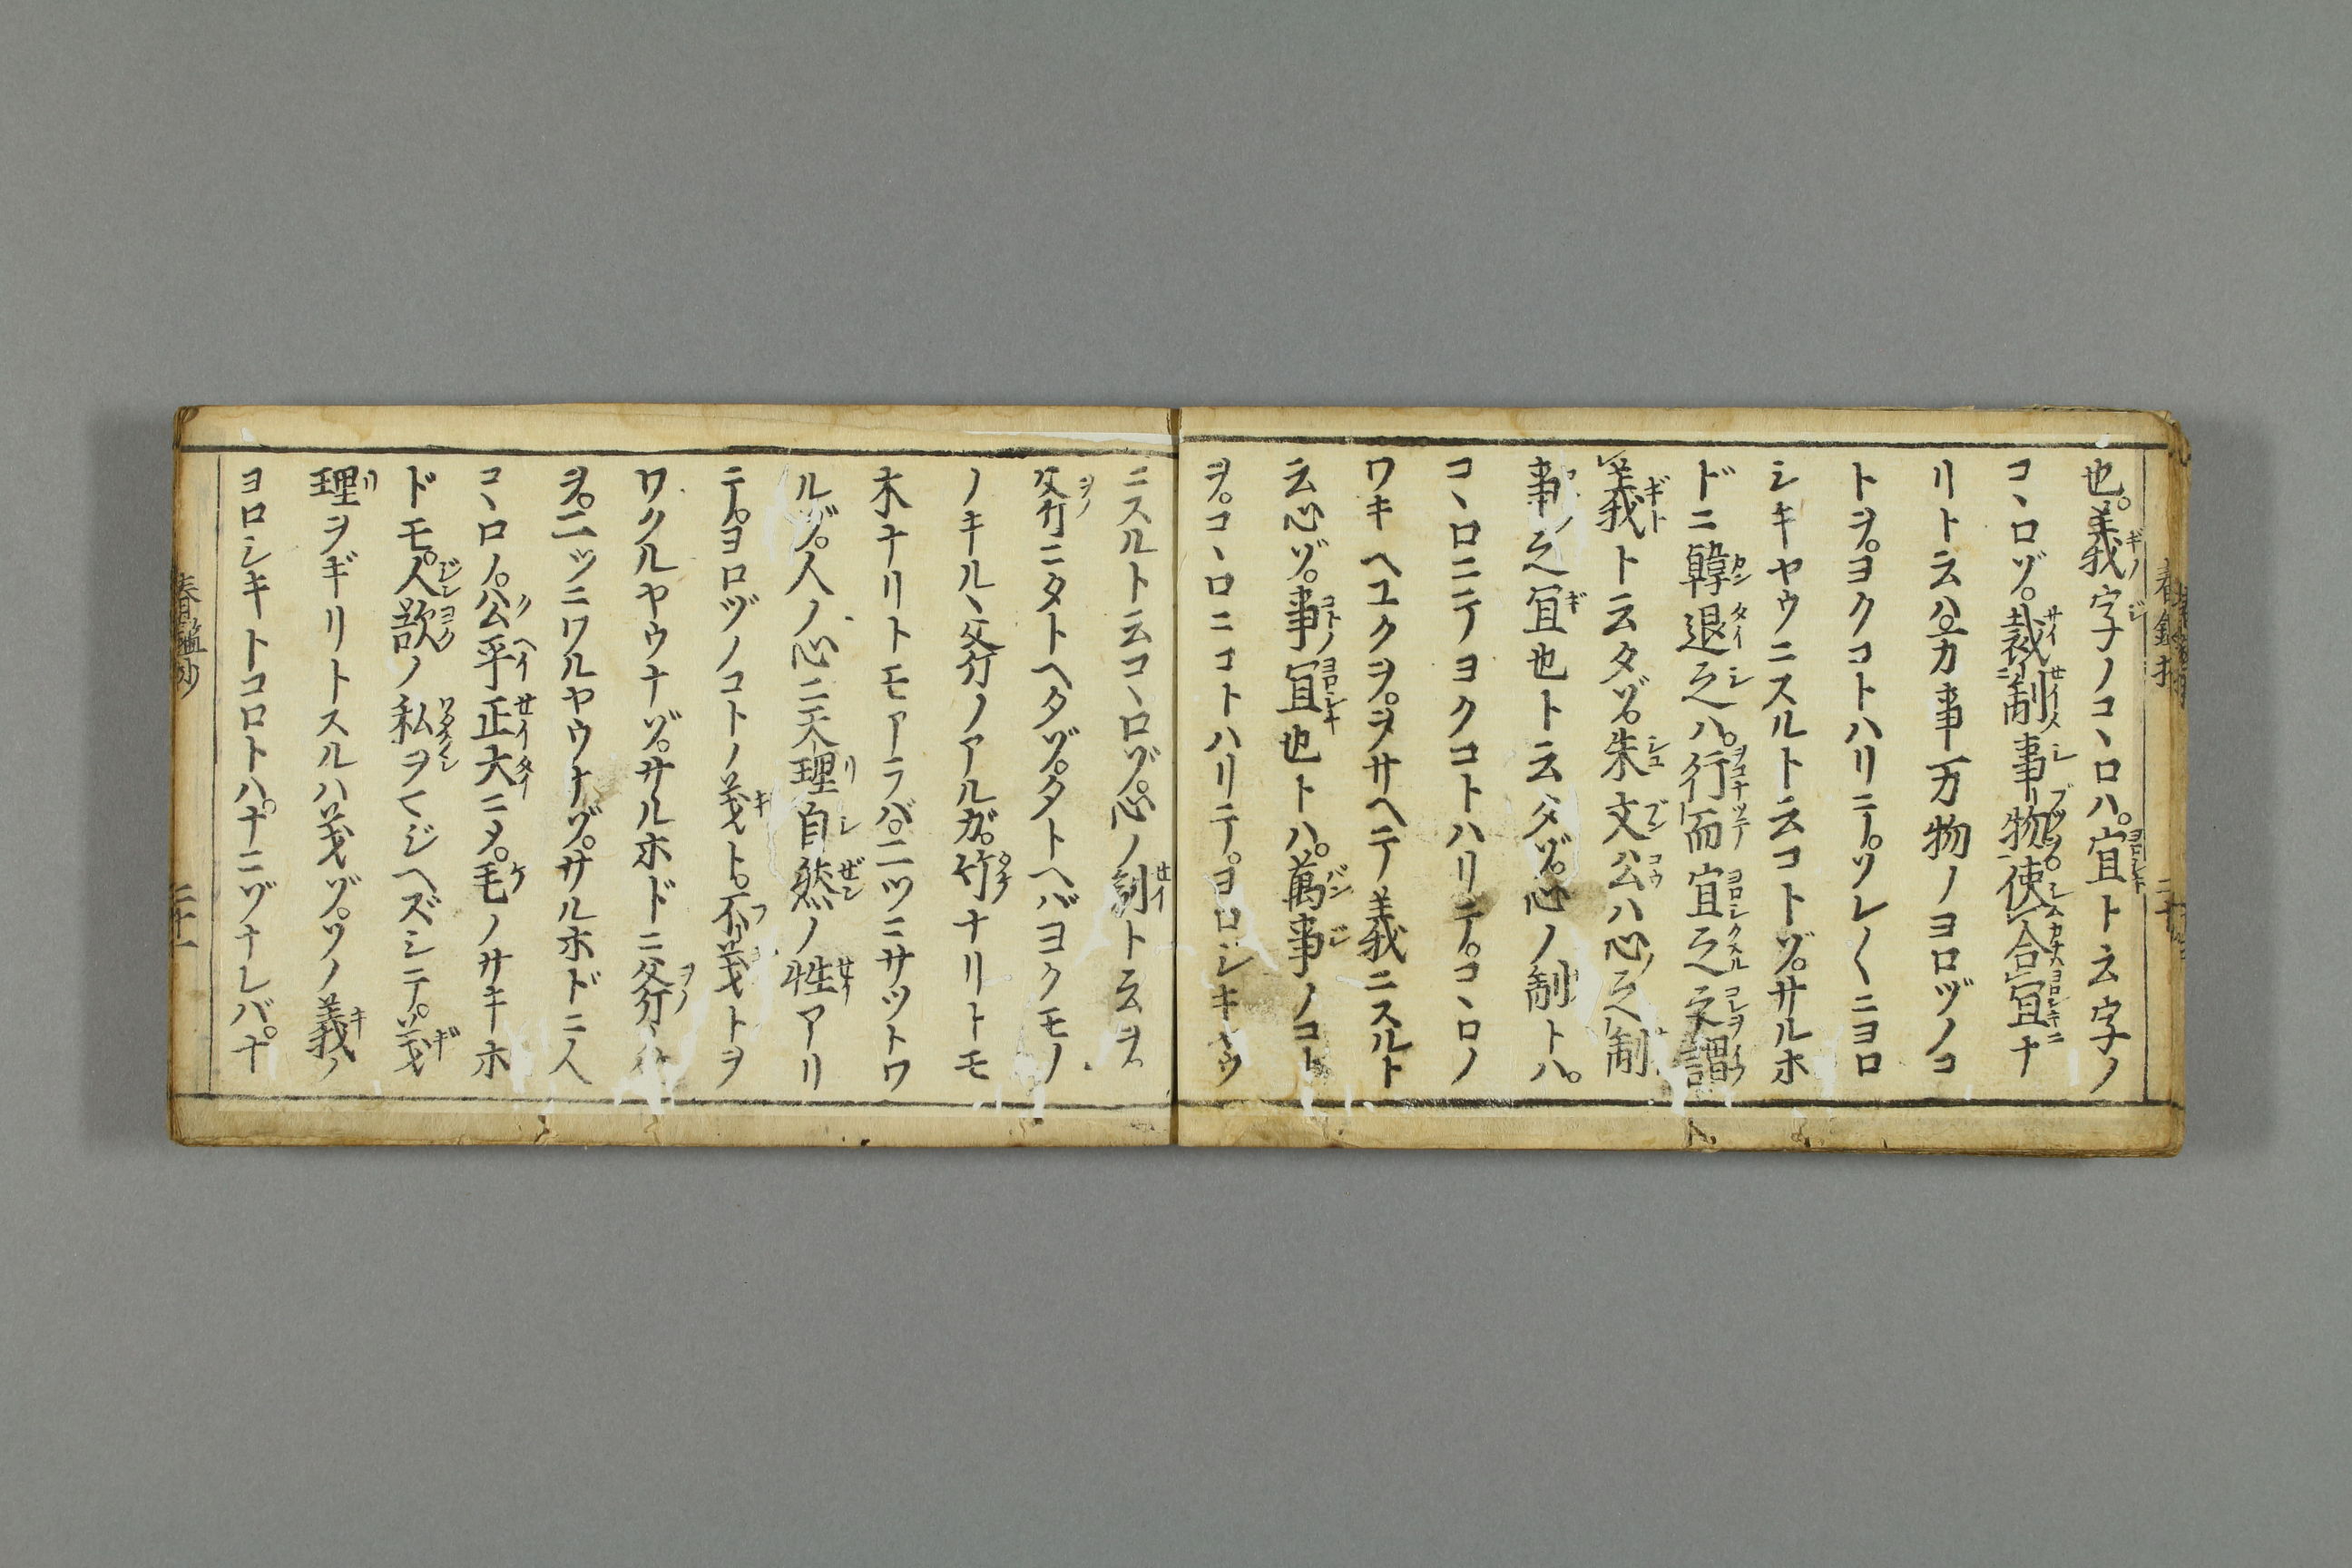 也。義字ノコヽロハ。宜ト云字ノ
コヽロゾ。裁制事物。使合宜ナ
リト云ハ。万事万物ノヨロヅノコ
トヲ。ヨクコトハリテ。ソレ〱ニヨロ
シキヤウニスルト云コトゾ。サルホ
ドニ韓退之ハ。行而宜之之謂
義ト云タゾ。朱文公ハ心之制
事之宜也ト云タゾ。心ノ制トハ。
コヽロニテヨクコトハリテ。コヽロノ
ワキヘユクヲ。ヲサヘテ義ニスルト
云心ゾ。事宜也トハ。萬事ノコト
ヲ。コヽロニコトハリテ。ヨロシキヤウ
ニスルト云コヽロゾ。心ノ制ト云ヲ
斧斤ニタトヘタゾ。タトヘバヨクモノ
ノキルヽ斧斤ノアルガ。竹ナリトモ
木ナリトモアラバ。二ツニサツトワ
ルゾ。人ノ心ニ天理自然ノ性アリ
テ。ヨロヅノコトノ義ト。不義トヲ
ワクルヤウナゾ。サルホドニ斧斤
ヲ。二ツニワルヤウナゾ。サルホドニ人
コヽロノ。公平正大ニメ。毛ノサキホ
ドモ。人欲ノ私ヲマジヘズシテ。義
理ヲギリトスルハ義ゾ。ソノ義ノ
ヨロシキトコロトハ。ナニゾナレバ。ナ
二十一